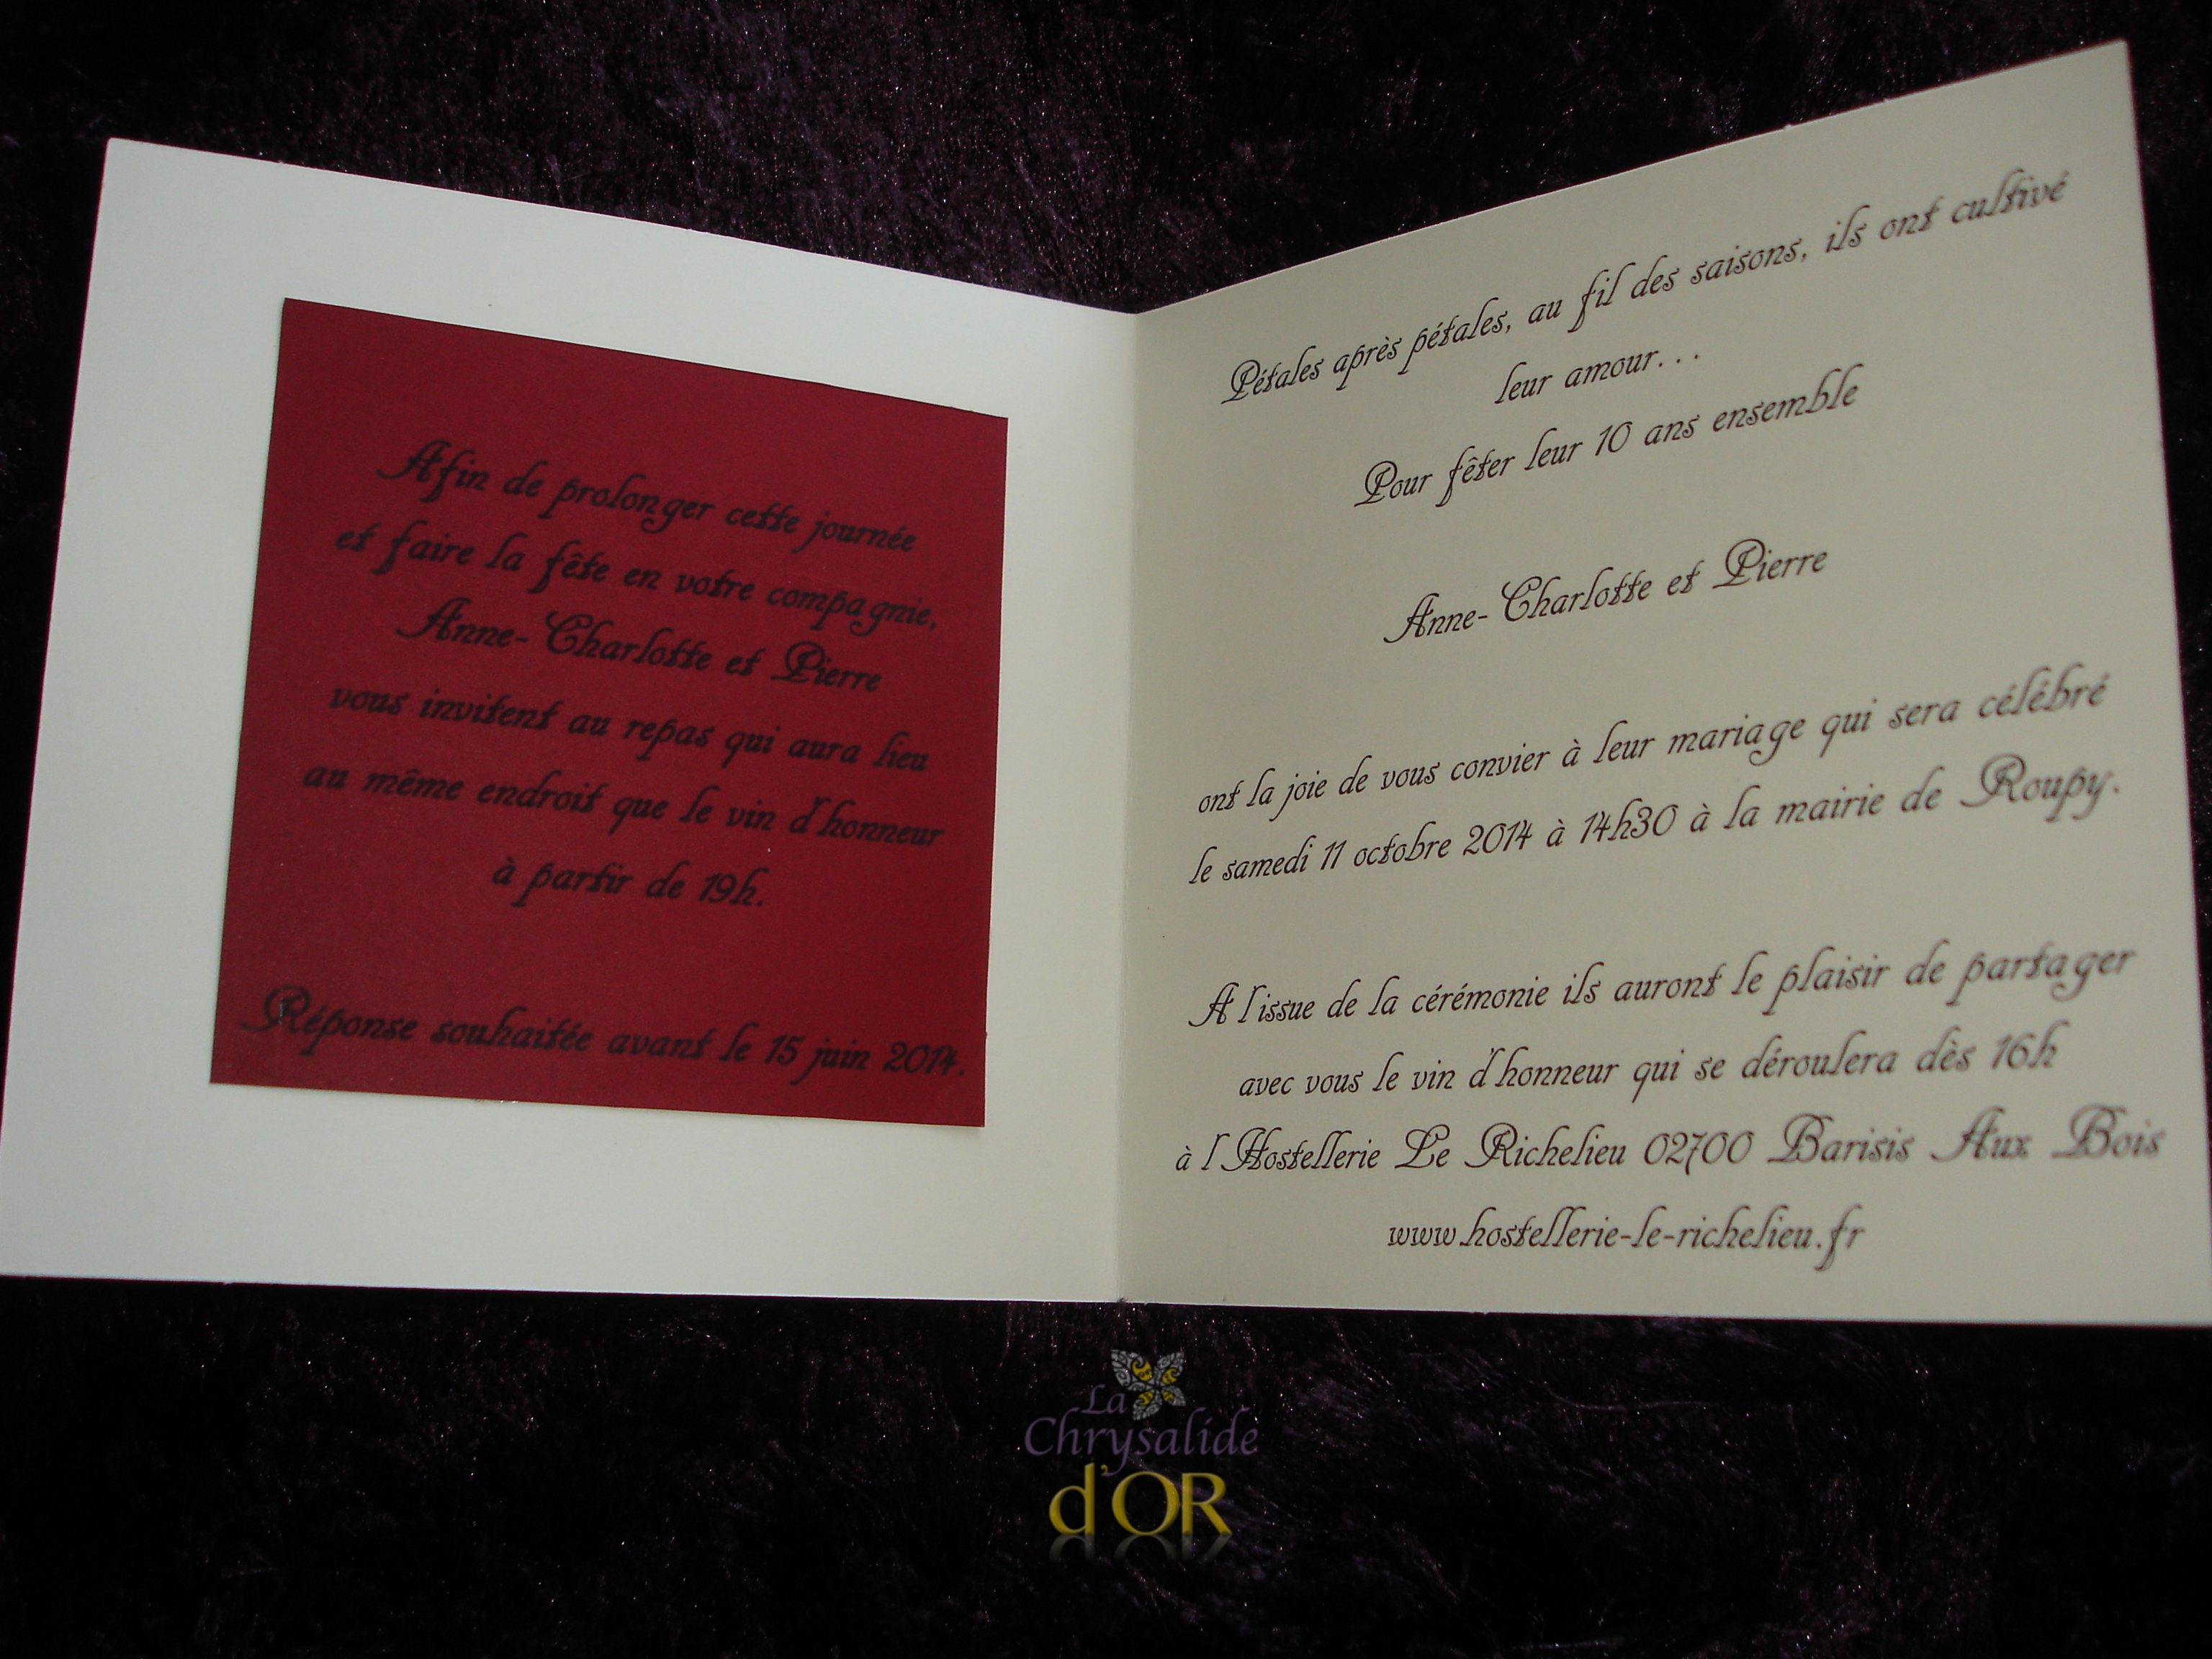 Afin de prolonger cette journée
et faire la fête en votre compagnie,
Anne-Charlotte et Pierre
vous invitent au repas qui aura lieu
au même endroit que le vin d'honneur
à partir de 19h.
Réponse souhaitée avant le 15 juin 2014.
Pétales après pétales, au fil des saisons, ils ont cultivé
leur amour...
Pour fêter leur 10 ans ensemble
Anne-Charlotte et Pierre
ont la joie de vous convier à leur mariage qui sera célébré
le samedi 11 octobre 2014 à 14h30 à la mairie de Roupy.
A l'issue de la cérémonie ils auront le plaisir de partager
avec vous le vin d'honneur qui se déroulera dès 16h
à l'Hostellerie Le Richelieu 02700 Barisis Aux Bois
www.hostellerie-le-richelieu.fr
La
Chrysalide
d'OR